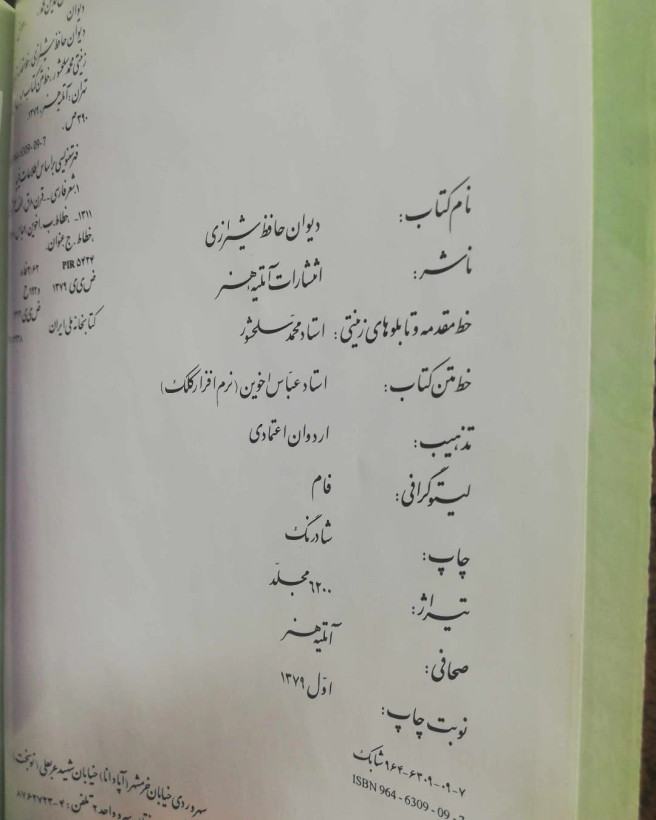 نام کتاب: دیوان حافظ شیرازی
ناشر: انتشارات آتلیه هنر
خط مقدمه و تابلوهای زینتی: استاد محمد سلحشور
خط متن کتاب: استاد عبّاس اخوین (نرم افزار کلک)
تذهیب: اردوان اعتمادی
لیتوگرافی: فام
چاپ: شادرنگ
تیراژ: ۶۲۰۰ مجلّد
صحافی: آتلیه هنر
نوبت چاپ: اوّل ۱۳۷۹
۹۶۴-۶۳۰۹-۰۹-۷ شابک
ISBN 964-6309-09-
سهروردی خیابان خرمشهر (آپادانا) خیابان شهید عربعلی (نوبخت)
واحد ۲ تلفن: ۴-۸۷۶۲۷۲۳
دیوان
دیوان حافظ شیرازی
تهران: آتلیه هنر، ۱۳۷۹.
۳۹۰ ص.
09-7
فهرستنویسی براساس اطلاعات فیپا
۱. شعر فارسی -- قرن ۸ ق.
۱۳۱۱- ، خطاط. ب. اخوین، عباس
، خطاط. ج. عنوان.
PIR ۵۴۲۴
۱۳۷۹
کتابخانه ملی ایران